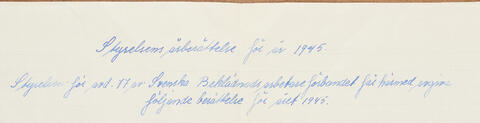 Styrelsens årberättelse för år 1945.
Styrelsen för avd. 17, av Svenska Beklädnadsarbetareförbundet får härmed, avgiva
följande berättelse för året 1945.